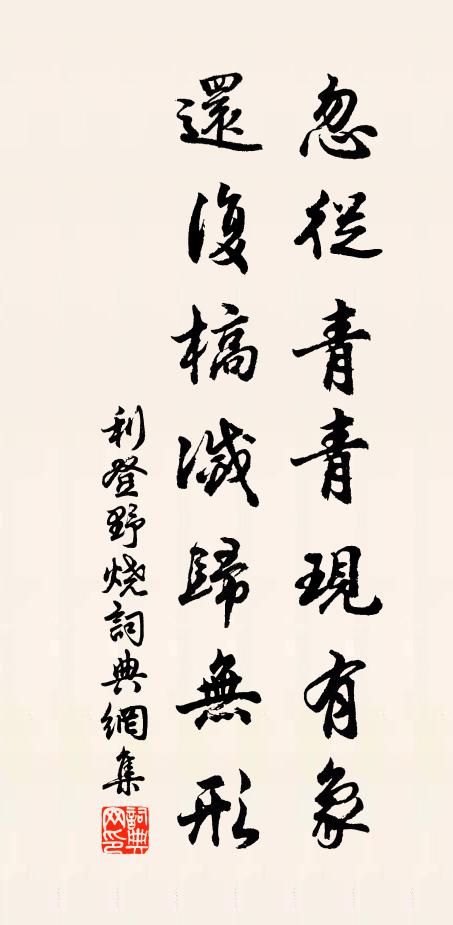 忽從青青現有象
還復槁滅歸無形
利登野燒詞典網集
詞典網印